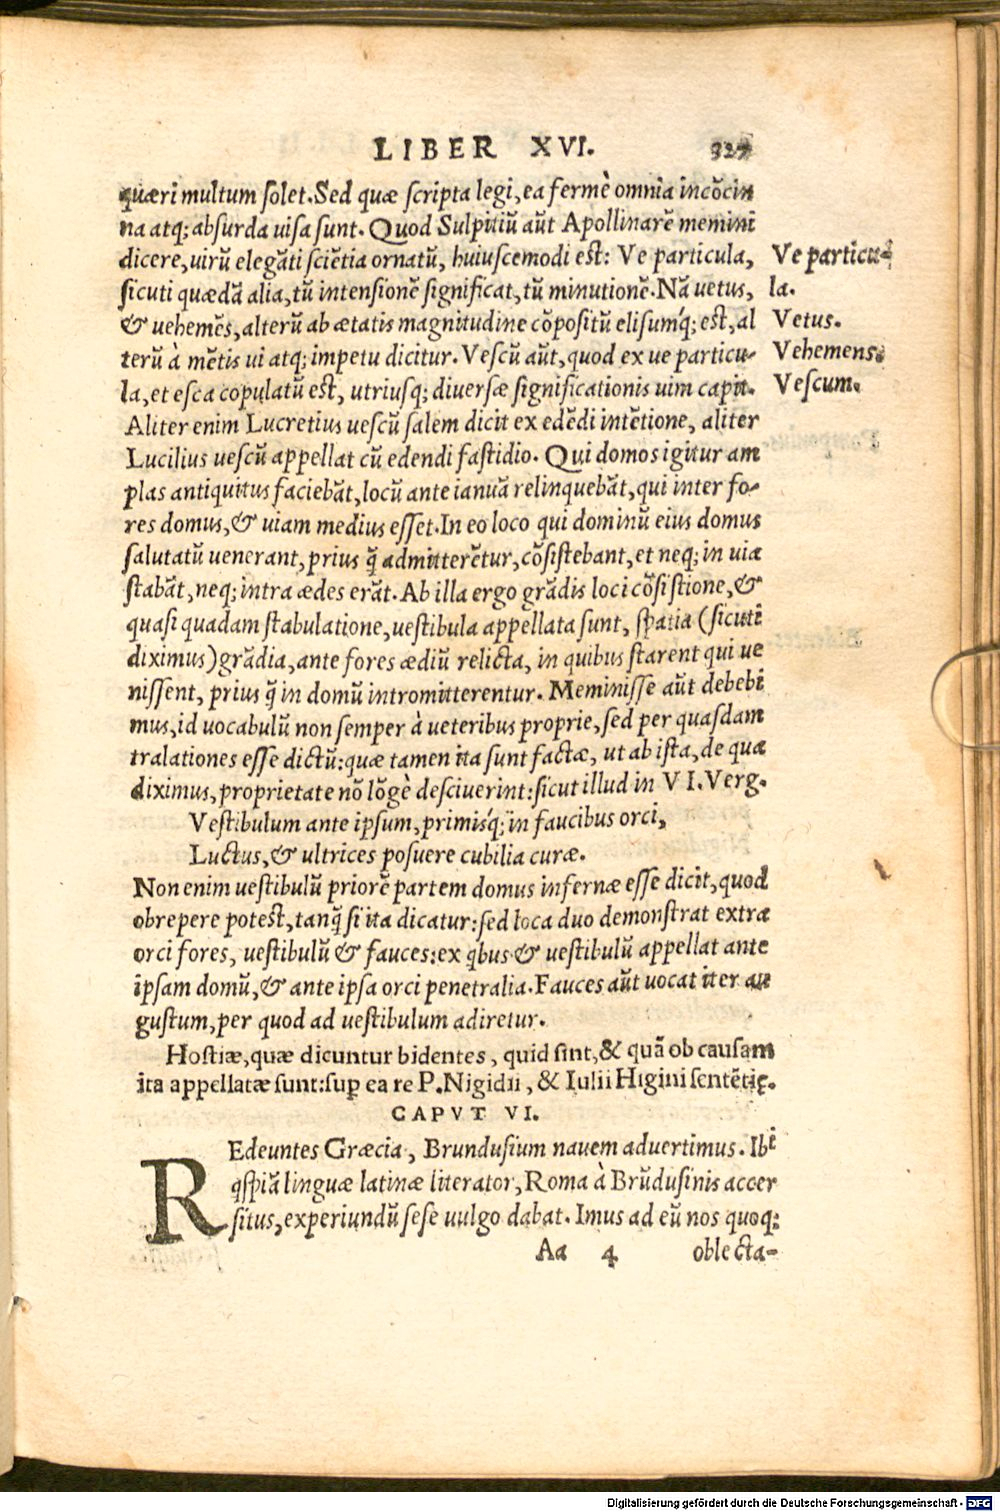 LIBER XVI. 327
quæri multum solet. Sed quæ scripta legi, ea fermè omnia incõcin
na atq; absurda uisa sunt. Quod Sulpitiũ aũt Apollinarẽ memini
dicere, uirũ elegãti sciẽtia ornatũ, huiuscemodi est: Ve particula,
Ve particu-
sicuti quædã alia, tũ intensionẽ significat, tũ minutionẽ. Nã uetus,
la.
& uehemẽs, alterũ ab ætatis magnitudine cõpositũ elisumq́; est, al
Vetus.
terũ à mẽtis ui atq; impetu dicitur. Vescũ aũt, quod ex ue particu-
Vehemens.
la, et esca copulatũ est, utriusq; diuersæ significationis uim capit.
Vescum.
Aliter enim Lucretius uescũ salem dicit ex edẽdi intẽtione, aliter
Lucilius uescũ appellat cũ edendi fastidio. Qui domos igitur am
plas antiquitus faciebãt, locũ ante ianuã relinquebãt, qui inter fo-
res domus, & uiam medius esset. In eo loco qui dominũ eius domus
salutatũ venerant, prius q̃ admitterẽtur, cõsistebant, et neq; in uia
stabãt, neq; intra ædes erãt. Ab illa ergo grãdis loci cõsistione, &
quasi quadam stabulatione, uestibula appellata sunt, spatia (sicuti
diximus) grãdia, ante fores ædiũ relicta, in quibus starent qui ue
nissent, prius q̃ in domũ intromitterentur. Meminisse aũt debebi
mus, id vocabulũ non semper à veteribus proprie, sed per quasdam
tralationes esse dictũ: quæ tamen ita sunt factæ, ut ab ista, de qua
diximus, proprietate nõ lõgè desciverint: sicut illud in VI. Verg.
Vestibulum ante ipsum, primisq́; in faucibus orci,
Luctus, & ultrices posuere cubilia curæ.
Non enim vestibulũ priorẽ partem domus infernæ esse dicit, quod
obrepere potest, tanq̃ si ita dicatur: sed loca duo demonstrat extra
orci fores, vestibulũ & fauces: ex qbus & vestibulũ appellat ante
ipsam domũ, & ante ipsa orci penetralia. Fauces aũt vocat iter an
gustum, per quod ad vestibulum adiretur.
Hostiæ, quæ dicuntur bidentes, quid sint, & quã ob causam
ita appellatæ sunt: sup ea re P. Nigidii, & Iulii Higini sentẽtię.
CAPVT VI.
REdeuntes Græcia, Brundusium navem advertimus. Ibi
qspiã linguæ latinæ literator, Roma à Brũdusinis accer
situs, experiundũ sese uulgo dabat. Imus ad eũ nos quoq;
Aa 4 oblecta-
Digitalisierung gefördert durch die Deutsche Forschungsgemeinschaft - DFG